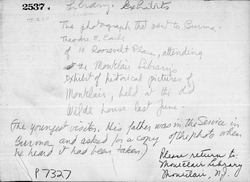 2537.
Library: Exhibits
The photograph that went to Burma.
Theodore E.
of 10 Roosevelt Place, attending
the Montclair Library's
exhibit of historical pictures of
Montclair, held at the old
Wilde house last June.
(The youngest visitor. His father was in the Service in
Burma and asked for a copy of the photo when
he heard it had been taken.)
Please return to
Montclair Library
Montclair, N.J.
P7327